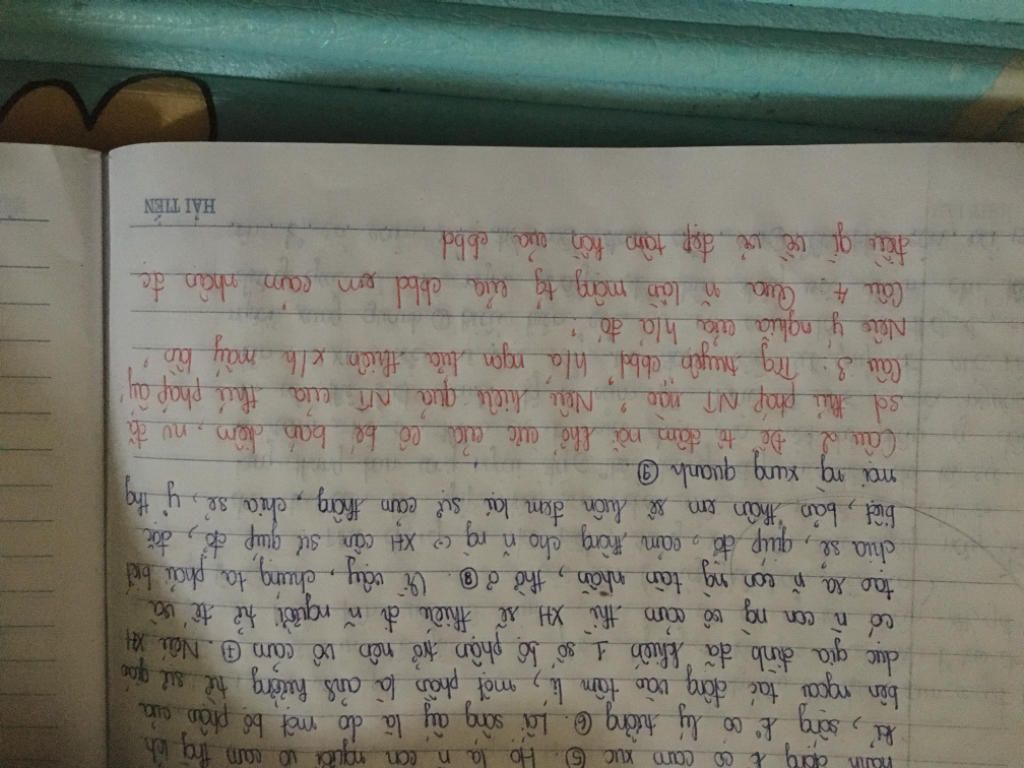 hành động k có cảm xúc ⑤. Họ là n con người vô cảm trg ích
kỉ, sống k có lý tưởng ⑥. Lối sống ấy là do một bộ phận của
bên ngoài tác động vào tâm lí, một phần là ảnh hưởng từ sự giáo
dục gia đình đã khiến 1 số bộ phận trở nên vô cảm ⑦. Nếu XH
có n con ng vô cảm thì XH sẽ thiếu đi n người tử tế và
tạo ra n con ng tàn nhẫn, thờ ơ ⑧. Vì vậy, chúng ta phải biết
chia sẻ, giúp đỡ, cảm thông cho n ng XH cần sự giúp đỡ, đặc
biệt, bản thân em sẽ luôn đem lại sự cảm thông, chia sẻ, y thg
mọi ng xung quanh ⑨.
Câu 2 Để tô đậm nỗi khổ cực của cô bé bán diêm, nv đã
sd thủ pháp NT nào? Nêu hiệu quả NT của thủ pháp ấy
Câu 3: Trg truyện cbbd, h/a ngọn lửa diêm x/h mấy lần?
Nêu ý nghĩa của h/a đó?
Câu 4 Qua n lần mộng tg của cbbd em cảm nhận đc
điều gì về vẻ đẹp tâm hồn của cbbd
HẢI TIẾN